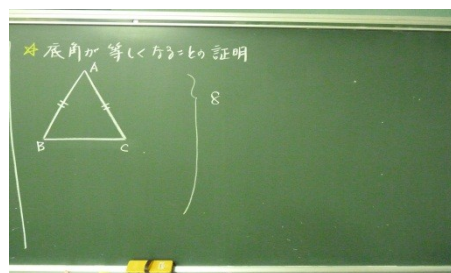 ☆ 底角が等しくなることの証明
A
B
C
8